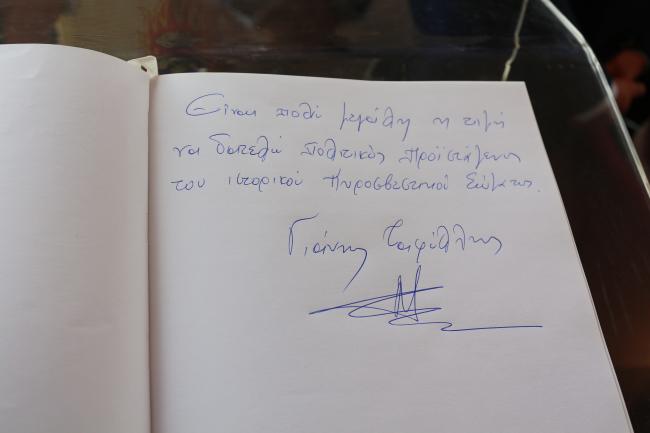 Είναι πολύ μεγάλη η τιμή
να διατελώ πολιτικός Προϊστάμενος
του ιστορικού Πυροσβεστικού Σώματος.
Γιάννης Ταφύλλης